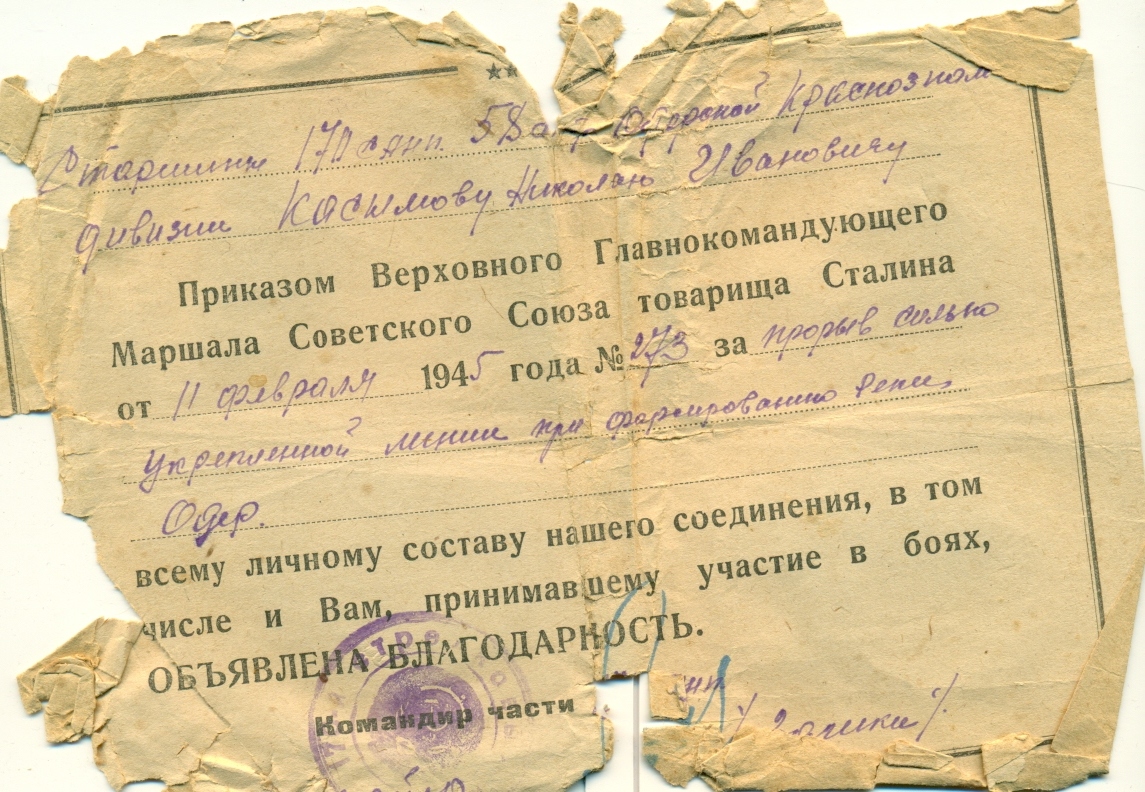 Старшине 170 сапп. 5 Одерской Краснознам
дивизии Касымову Николаю Ивановичу
Приказом Верховного Главнокомандующего
Маршала Советского Союза товарища Сталина
от 11 февраля 1945 года № 273 за прорыв сильно
укрепленной линии при форсировании реки
Одер.
всему личному составу нашего соединения, в том
числе и Вам, принимавшему участие в боях,
ОБЪЯВЛЕНА БЛАГОДАРНОСТЬ.
Командир части